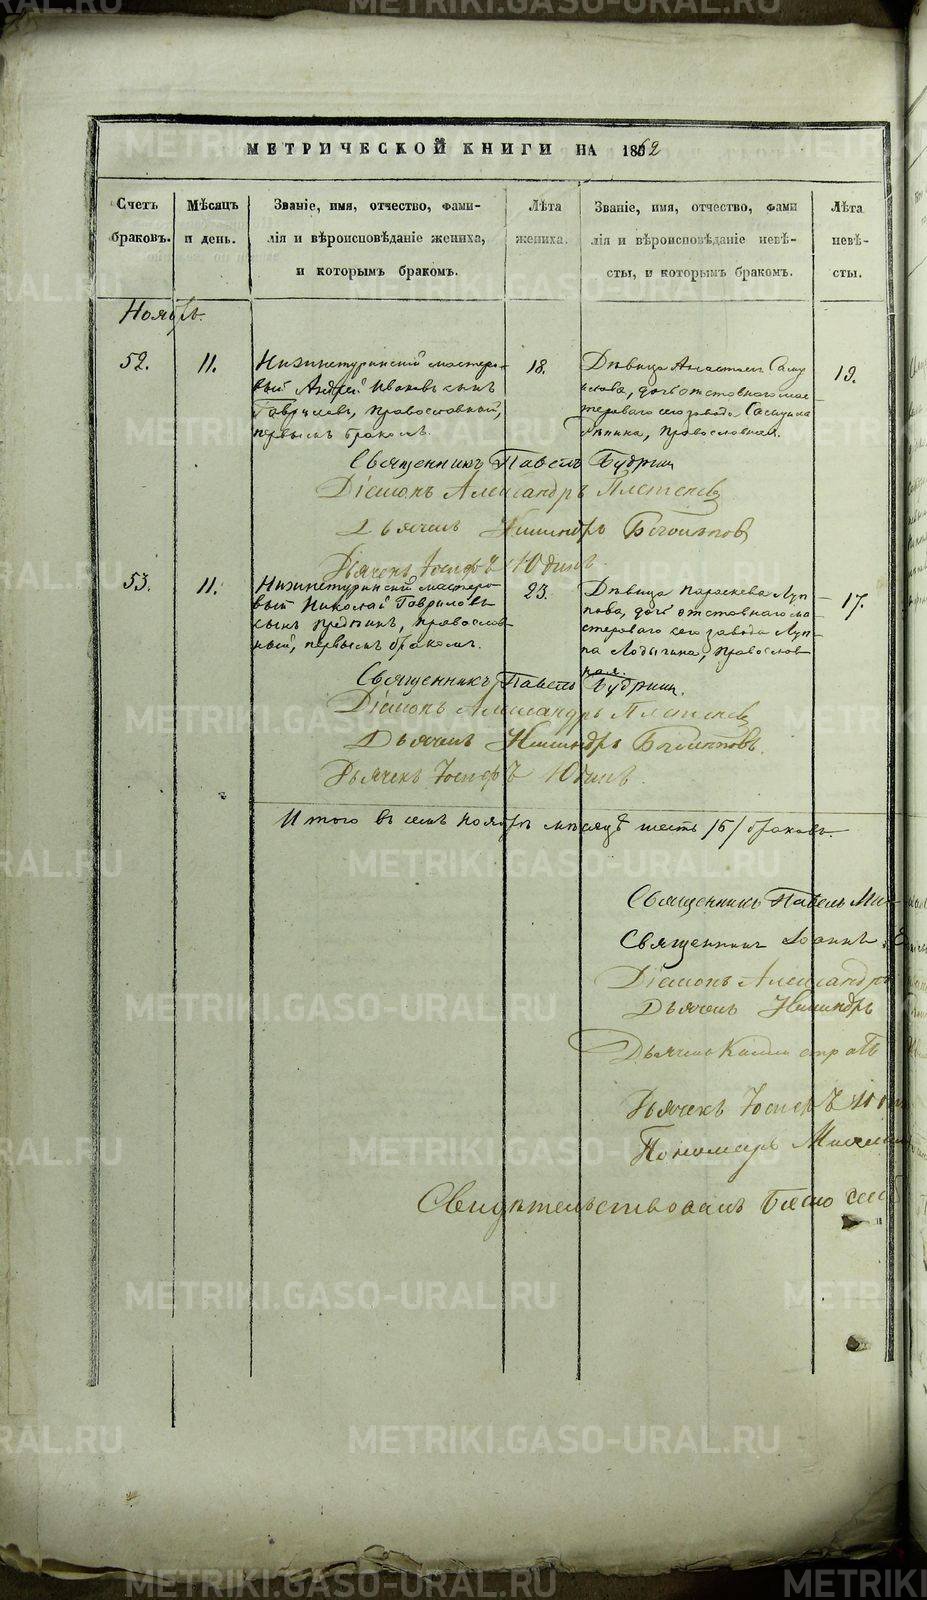 МЕТРИЧЕСКОЙ КНИГИ НА 1862
Счетъ браковъ.
Мѣсяцъ и день.
Званіе, имя, отчество, фами-
лія и вѣроисповѣданіе жениха,
и которымъ бракомъ.
Лѣта жениха.
Званіе, имя, отчество, фами
лія и вѣроисповѣданіе невѣ-
сты, и которымъ бракомъ.
Лѣта невѣ-
сты.
Ноябрь.
52.
11.
Нижнетуринскій мастеро-
вый Андрей Ивановъ сынъ
Гавриловъ, православный,
первымъ бракомъ.
18.
Дѣвица Анастасія Само
илова, дочь отставного мас-
терового сего завода Самуила
православная.
19.
Священникъ Павелъ Будрин
Діаконъ Александръ Плетенев
Дьячекъ
Дьячекъ Іосифъ Юдинъ
53.
11.
Нижнетуринскій мастеро-
вый Николай Гавриловъ
сынъ Предеинъ, православ-
ный, первымъ бракомъ.
23.
Дѣвица Параскева Луп-
пова, дочь отставнаго ма-
стероваго сего завода Луп-
па Лодыгина, православ-
ная.
17.
Священникъ Павелъ Будрин.
Діаконъ Александръ Плетенев
Дьячекъ
Дьячекъ Іосифъ Юдинъ.
Итого въ семъ Ноябрѣ мѣсяцѣ шесть /6/ браковъ.
Священникъ Павелъ
Священникъ Іоаннъ
Діаконъ Александръ
Дьячекъ
Дьячекъ Калистратъ
Дьячекъ Іосифъ
Пономарь
METRIKI.GASO-URAL.RU